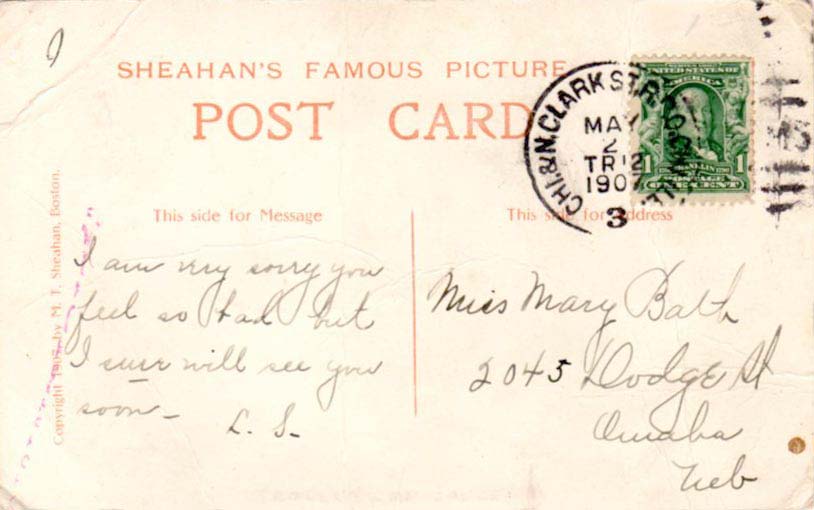 SHEAHAN'S FAMOUS PICTURE
POST CARD
CHI. & N. CLARK ST. R.P.O.
MA
2
TR 12
1907
3
UNITED STATES OF
AMERICA
1 FRANKLIN 1
POSTAGE
ONE CENT
This side for Message
This side for Address
Copyright 1905, by M. T. Sheahan, Boston.
I am very sorry you
feel so bad but
I suer will see you
soon—
L. S.
Miss Mary Bath
2045 Dodge St
Omaha
Neb